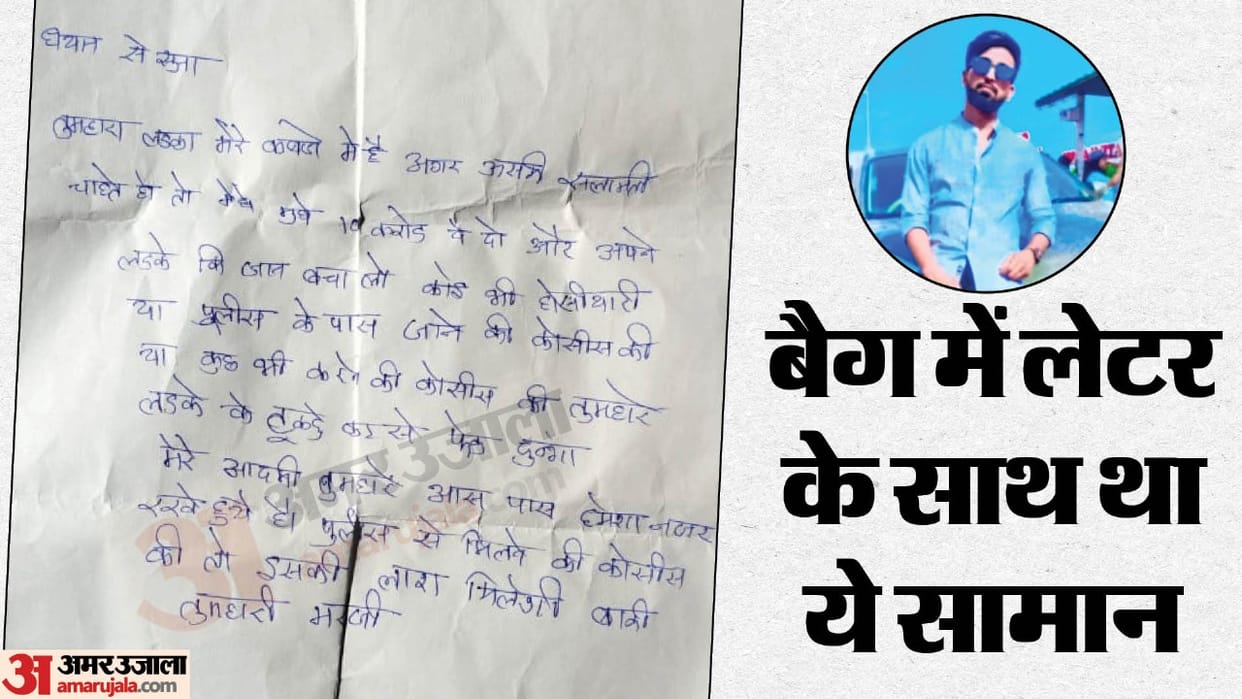 धयान से सुना
तुमहारा लडका मेरे कबजे मे है अगर उसकी सलामती
चाहते हो तो मुझे 10 करोड दे दो और अपने
लडके कि जान बचा लो कोइ भी होसीयारी
या पुलीस के पास जाने की कोसीस की
या कुछ भी करने की कोसीस की तुमहारे
लडके के टूकडे कर के फेक दुन्गा
मेरे आदमी तुमहारे आस पास हमेशा नजर
रखे हुये है। पुलीस से मिलने की कोसीस
की तो इसकी लाश मिलेगी बाकी
तुमहारी मरजी
बैग में लेटर
के साथ था
ये सामान
अ अमर उजाला
amarujala.com
अमर उजाला
amarujala.com